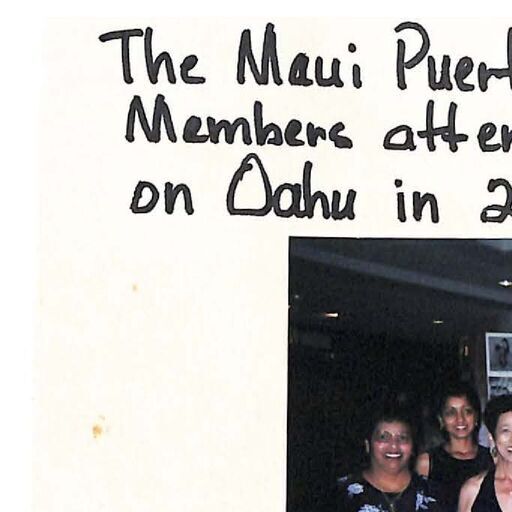 The Maui Puer
Members atten
on Oahu in 2